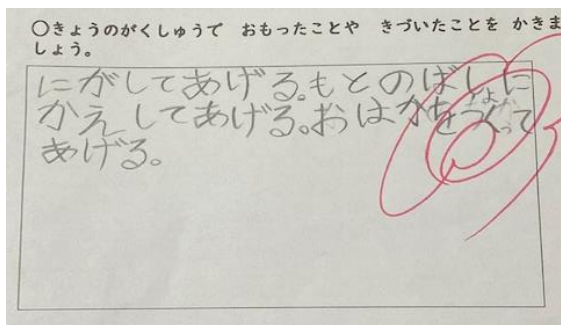 ○きょうのがくしゅうで おもったことや きづいたことを かきま
しょう。
にがしてあげる。もとのばしょに
かえしてあげる。おはかをつくって
あげる。